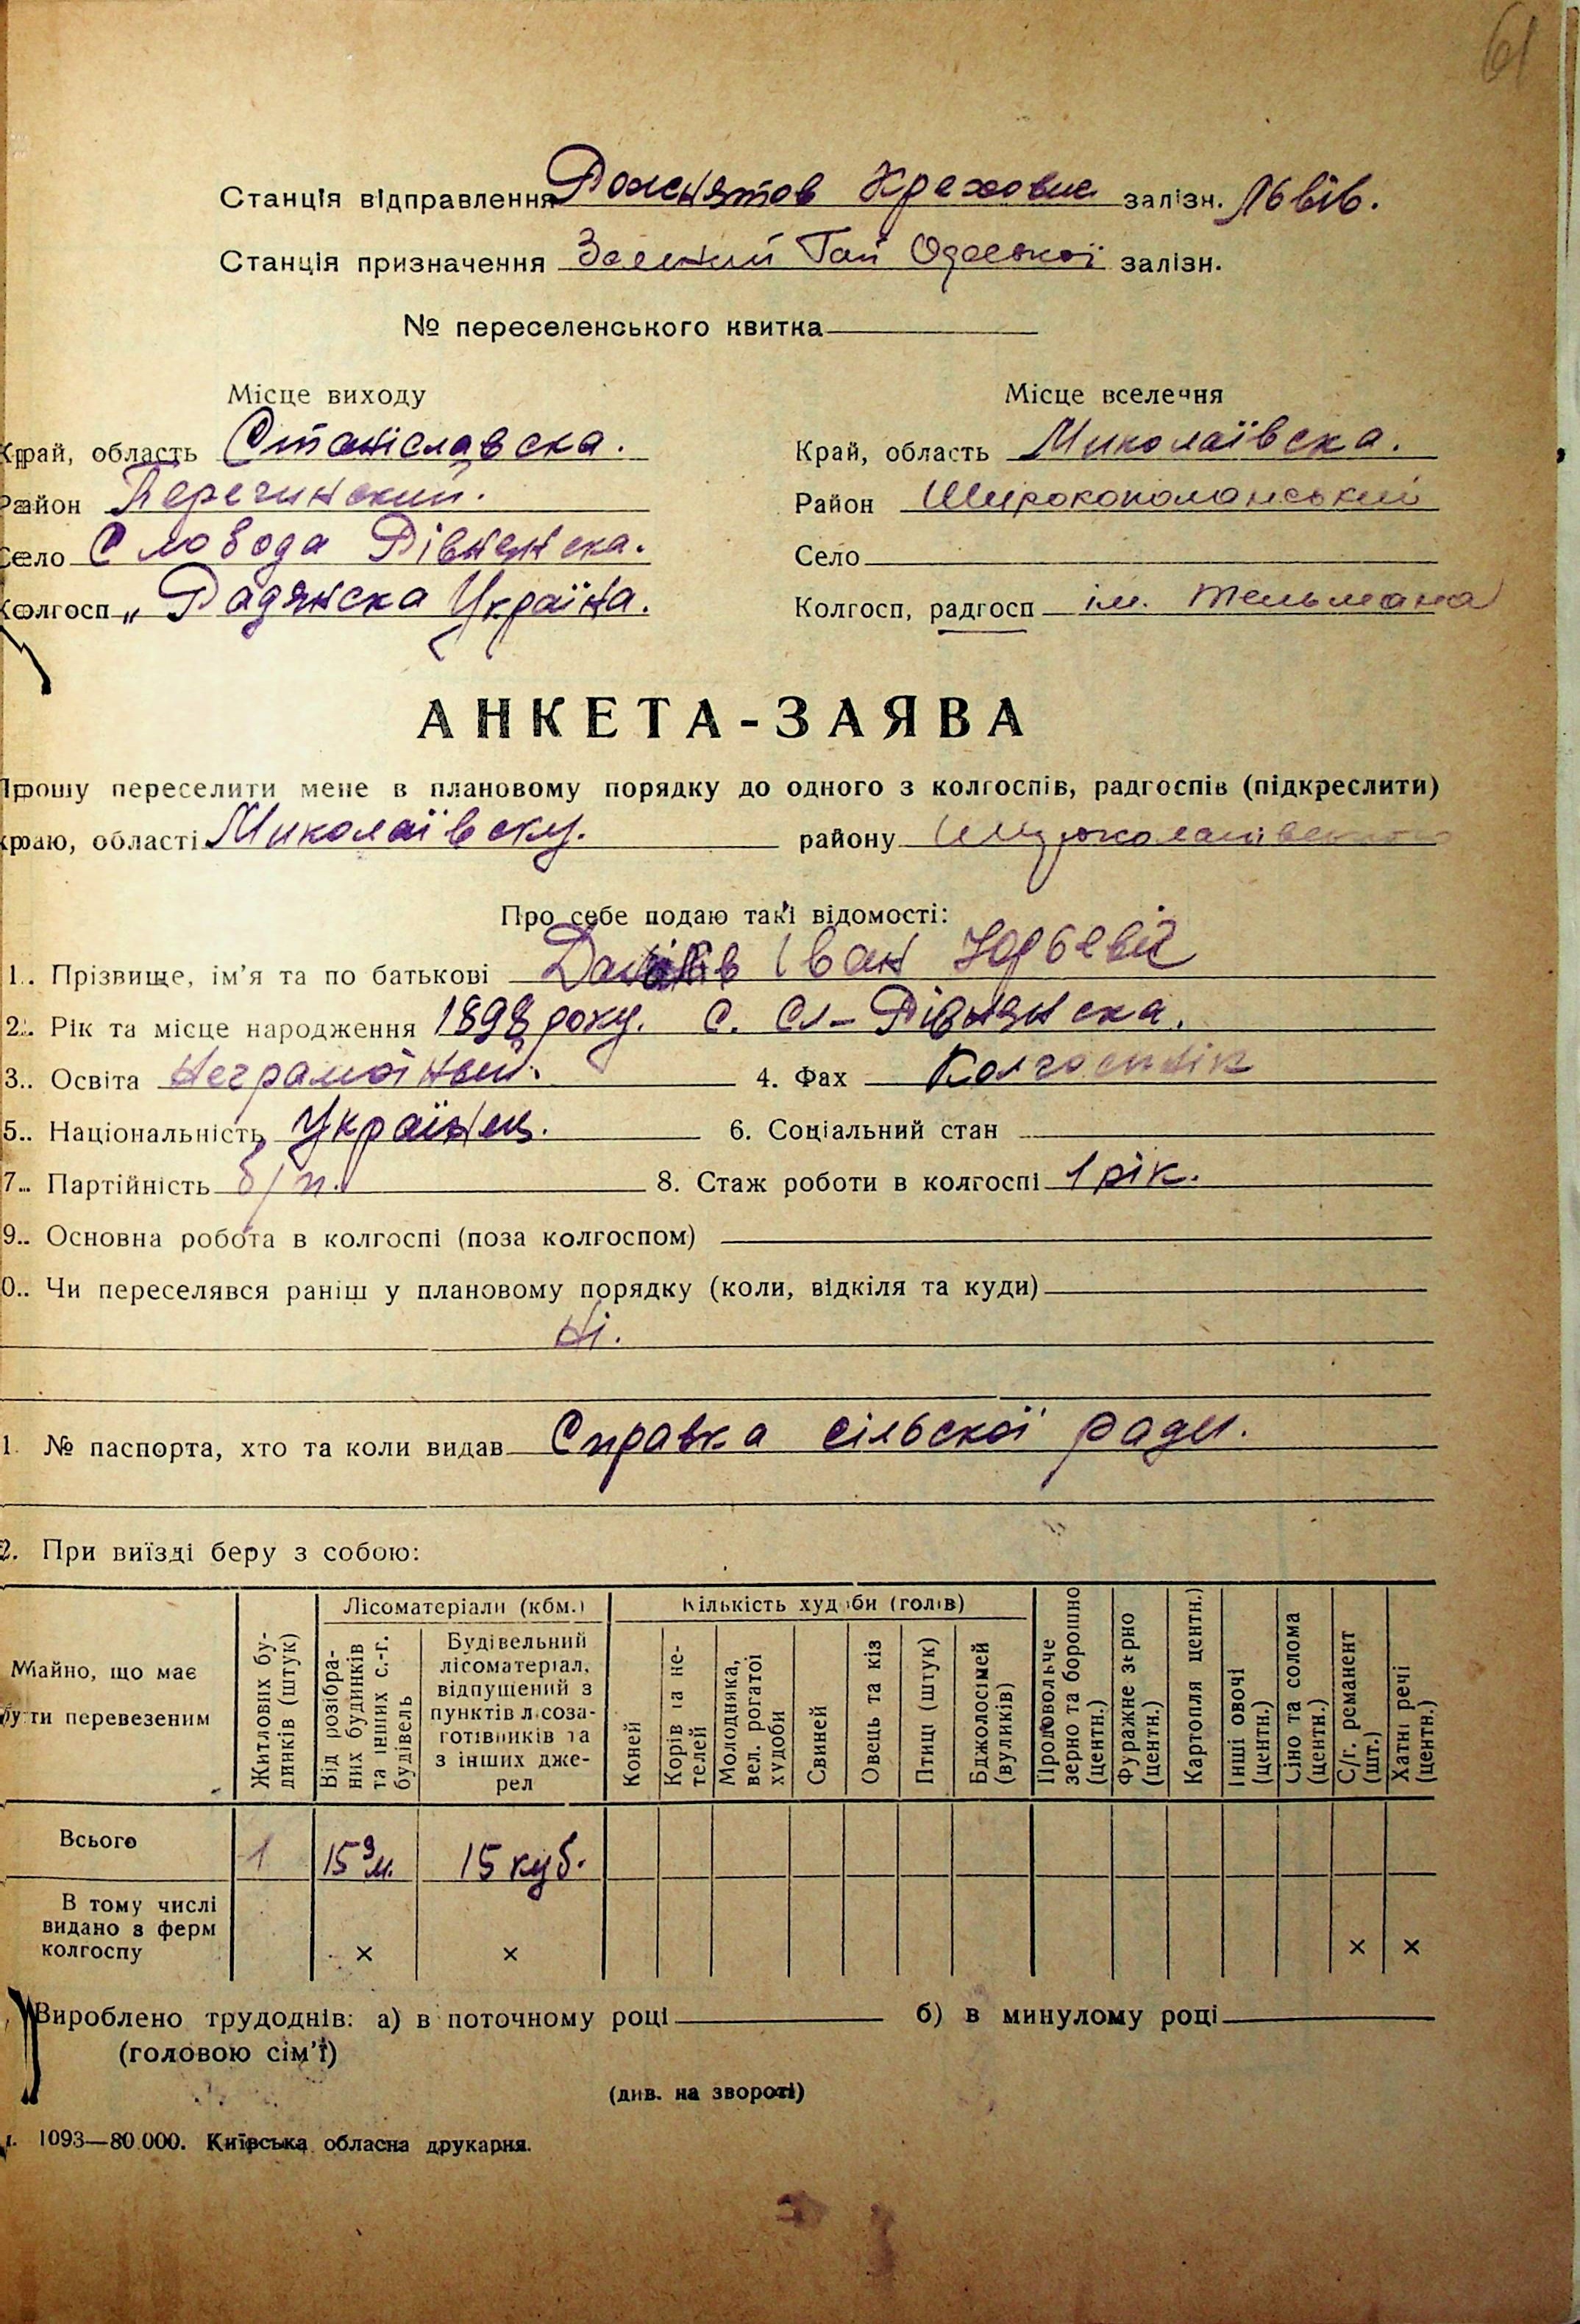 61
Станція відправлення Рожнятов Креховичі залізн. Львів.
Станція призначення Зелений Гай Одеської залізн.
№ переселенського квитка
Місце виходу
Край, область Станіславска.
Район Перегинский.
Село Слобода Рівнянска.
Колгосп „Радянска Україна.
Місце вселення
Край, область Миколаївска.
Район Широколоманський
Село
Колгосп, радгосп ім. Тельмана
АНКЕТА-ЗАЯВА
Прошу переселити мене в плановому порядку до одного з колгоспів, радгоспів (підкреслити)
краю, області Миколаївску. району
Про себе подаю такі відомості:
1. Прізвище, ім'я та по батькові Іван Юрьевіч
2. Рік та місце народження 1898 року. с. Сл-Рівнянска.
3. Освіта Неграмотный. 4. Фах Колгоспнік
5. Національність Українец. 6. Соціальний стан
7. Партійність б/п. 8. Стаж роботи в колгоспі 1 рік.
9. Основна робота в колгоспі (поза колгоспом)
0. Чи переселявся раніш у плановому порядку (коли, відкіля та куди)
Ні.
1. № паспорта, хто та коли видав Справка сільскої ради.
2. При виїзді беру з собою:
Майно, що має бути перевезеним
Житлових будинків (штук)
Лісоматеріали (кбм.)
Від розібраних будинків та інших с.-г. будівель
Будівельний лісоматеріал, відпущений з пунктів лісозаготівників та з інших джерел
Кількість худоби (голів)
Коней
Корів та нетелей
Молодняка, вел. рогатої худоби
Свиней
Овець та кіз
Птиці (штук)
Бджолосімей (вуликів)
Продовольче зерно та борошно (центн.)
Фуражне зерно (центн.)
Картопля центн.)
Інші овочі (центн.)
Сіно та солома (центн.)
С/г. реманент (шт.)
Хатні речі (центн.)
Всього 1 15 м. 15 куб.
В тому числі видано з ферм колгоспу × × × ×
Вироблено трудоднів: а) в поточному році б) в минулому році
(головою сім'ї)
(див. на звороті)
1093—80.000. Київська обласна друкарня.